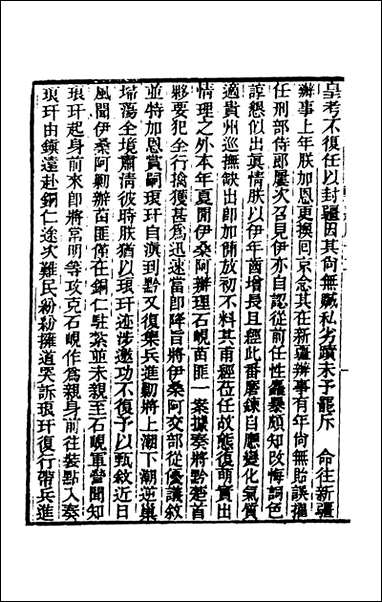 皇考不復任以封疆因其尚無贓私劣蹟未予罷斥　命往新疆
辦事上年朕加恩更換回京念其在新疆辦事有年尚無貽誤擢
任刑部侍郎屢次召見伊亦自認從前任性蠢暴頗知改悔詞色
諄懇似出眞情朕以伊年齒增長且經此番磨鍊自應變化氣質
適貴州巡撫缺出卽加簡放初不料其甫經莅任故態復萌實出
情理之外本年夏間伊桑阿辦理石峴苗匪一案據奏將黔楚首
夥要犯全行擒獲甚爲迅速當卽降旨將伊桑阿交部從優議敘
並特加恩賞嗣琅玕自滇到黔又復集兵進勦將上潮下潮逆巢
埽蕩全境肅淸彼時朕猶以琅玕迹涉邀功不復予以甄敘近日
風聞伊桑阿勦辦苗匪僅在銅仁駐紮並未親至石峴軍營聞知
琅玕起身前來卽將常明等攻克石峴作爲親身前往裝點入奏
琅玕由鎭遠赴銅仁途次難民紛紛擁道哭訴琅玕復行帶兵進